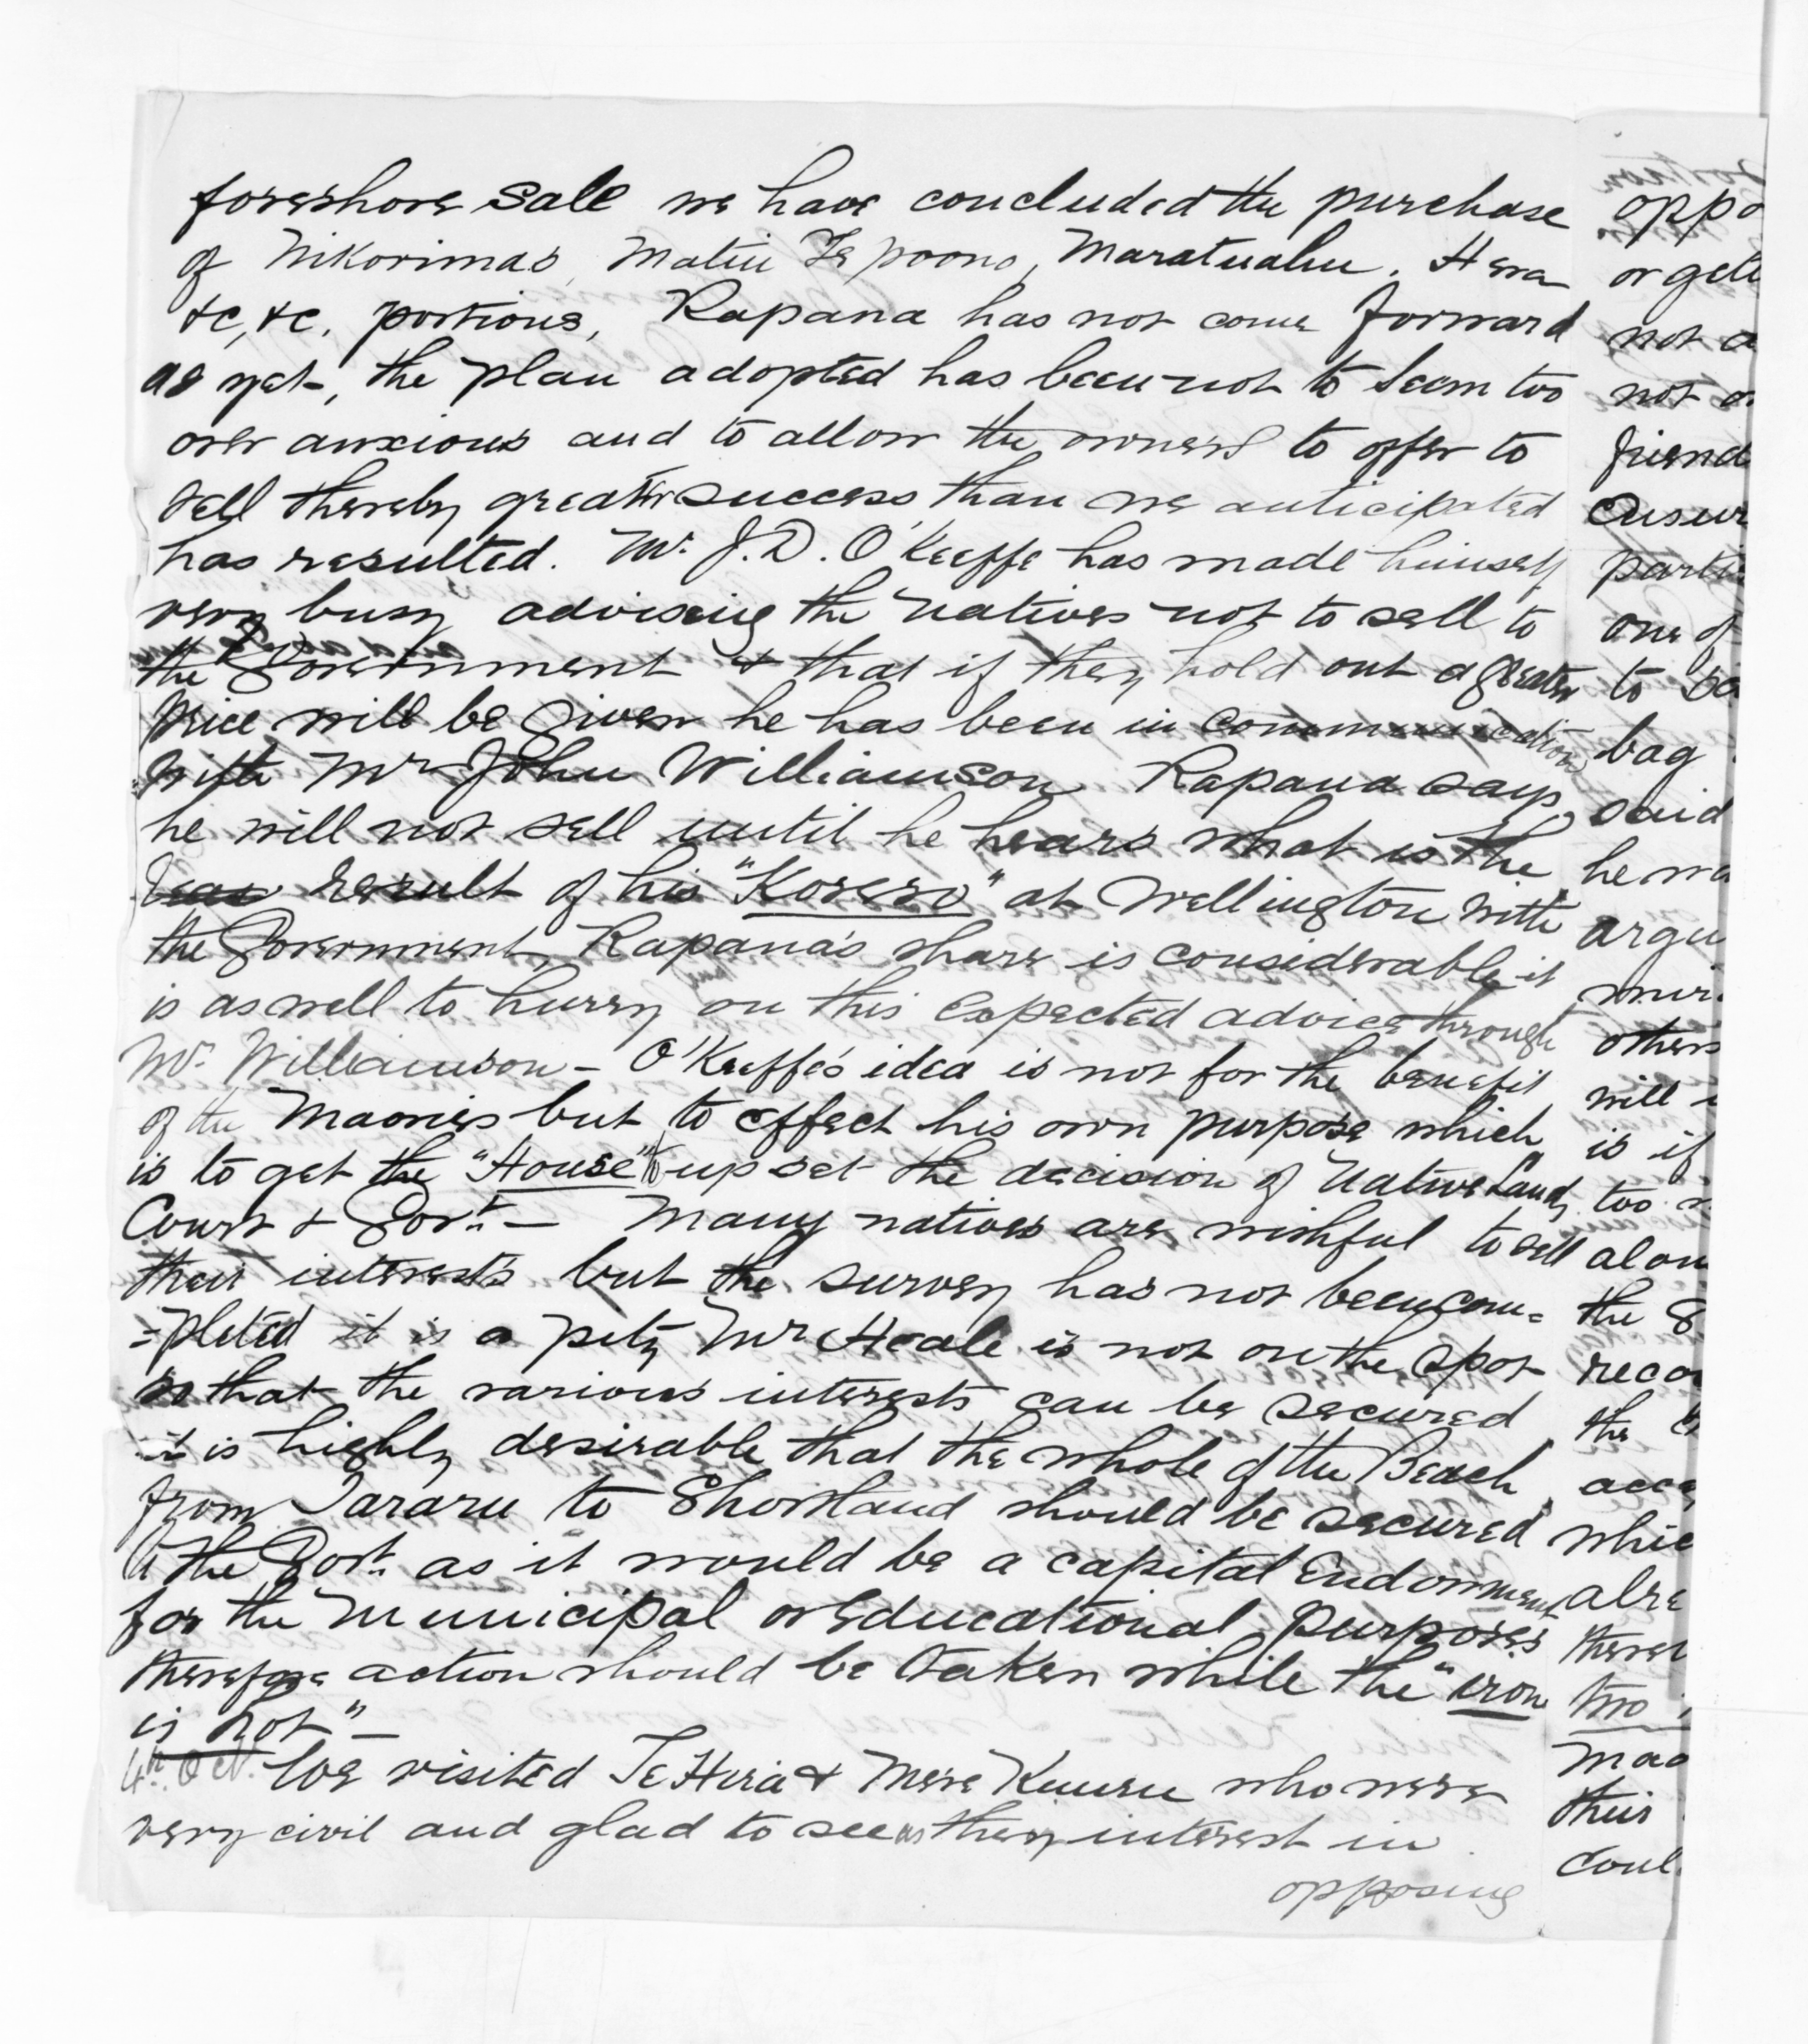 foreshore sale we have concluded the purchase
of Nikorimas, Matiu Te poono, Maratuahu. Hera
&c, &c. portions, Rapana has not come forward
as yet, the plan adopted has been not to seem too
over anxious and to allow the owners to offer to
sell thereby greater success than we anticipated
has resulted. Mr. J. D. O'Keeffe has made himself
very busy advising the natives not to sell to
the Government & that if they hold out a greater
price will be given he has been in communication
with Mr John Williamson Rapana says
he will not sell until he hears what is the
result of his "Korero" at Wellington with
the Government, Rapana's share is considerable it
is as well to hurry on this expected advice through
Mr. Williamson - O'Keeffe's idea is not for the benefit
of the Maories but to effect his own purpose which
is to get the "House" to upset the decision of Native Land
Court & Govt. — Many natives are wishful to sell
their interests but the survey has not been com=
=pleted it is a pity Mr Heale is not on the spot
so that the various interests can be secured
it is highly desirable that the whole of the Beach
from Tararu to Shortland should be secured
to the Govt. as it would be a capital Endowment
for the Municipal or Educational purposes
therefore action should be taken while the "iron
is hot" —
4th. Oct. We visited Te Hira & Mere Kuuru who were
very civil and glad to see us they interest in
opposing
oppo
or gett
not a
not o
friend
Ensur
partie
one of
to be
bag
said
he wa
argu
others
will
is if
too
alon
the
recor
the
acce
whic
alre
there
two
Mao
their
Coul